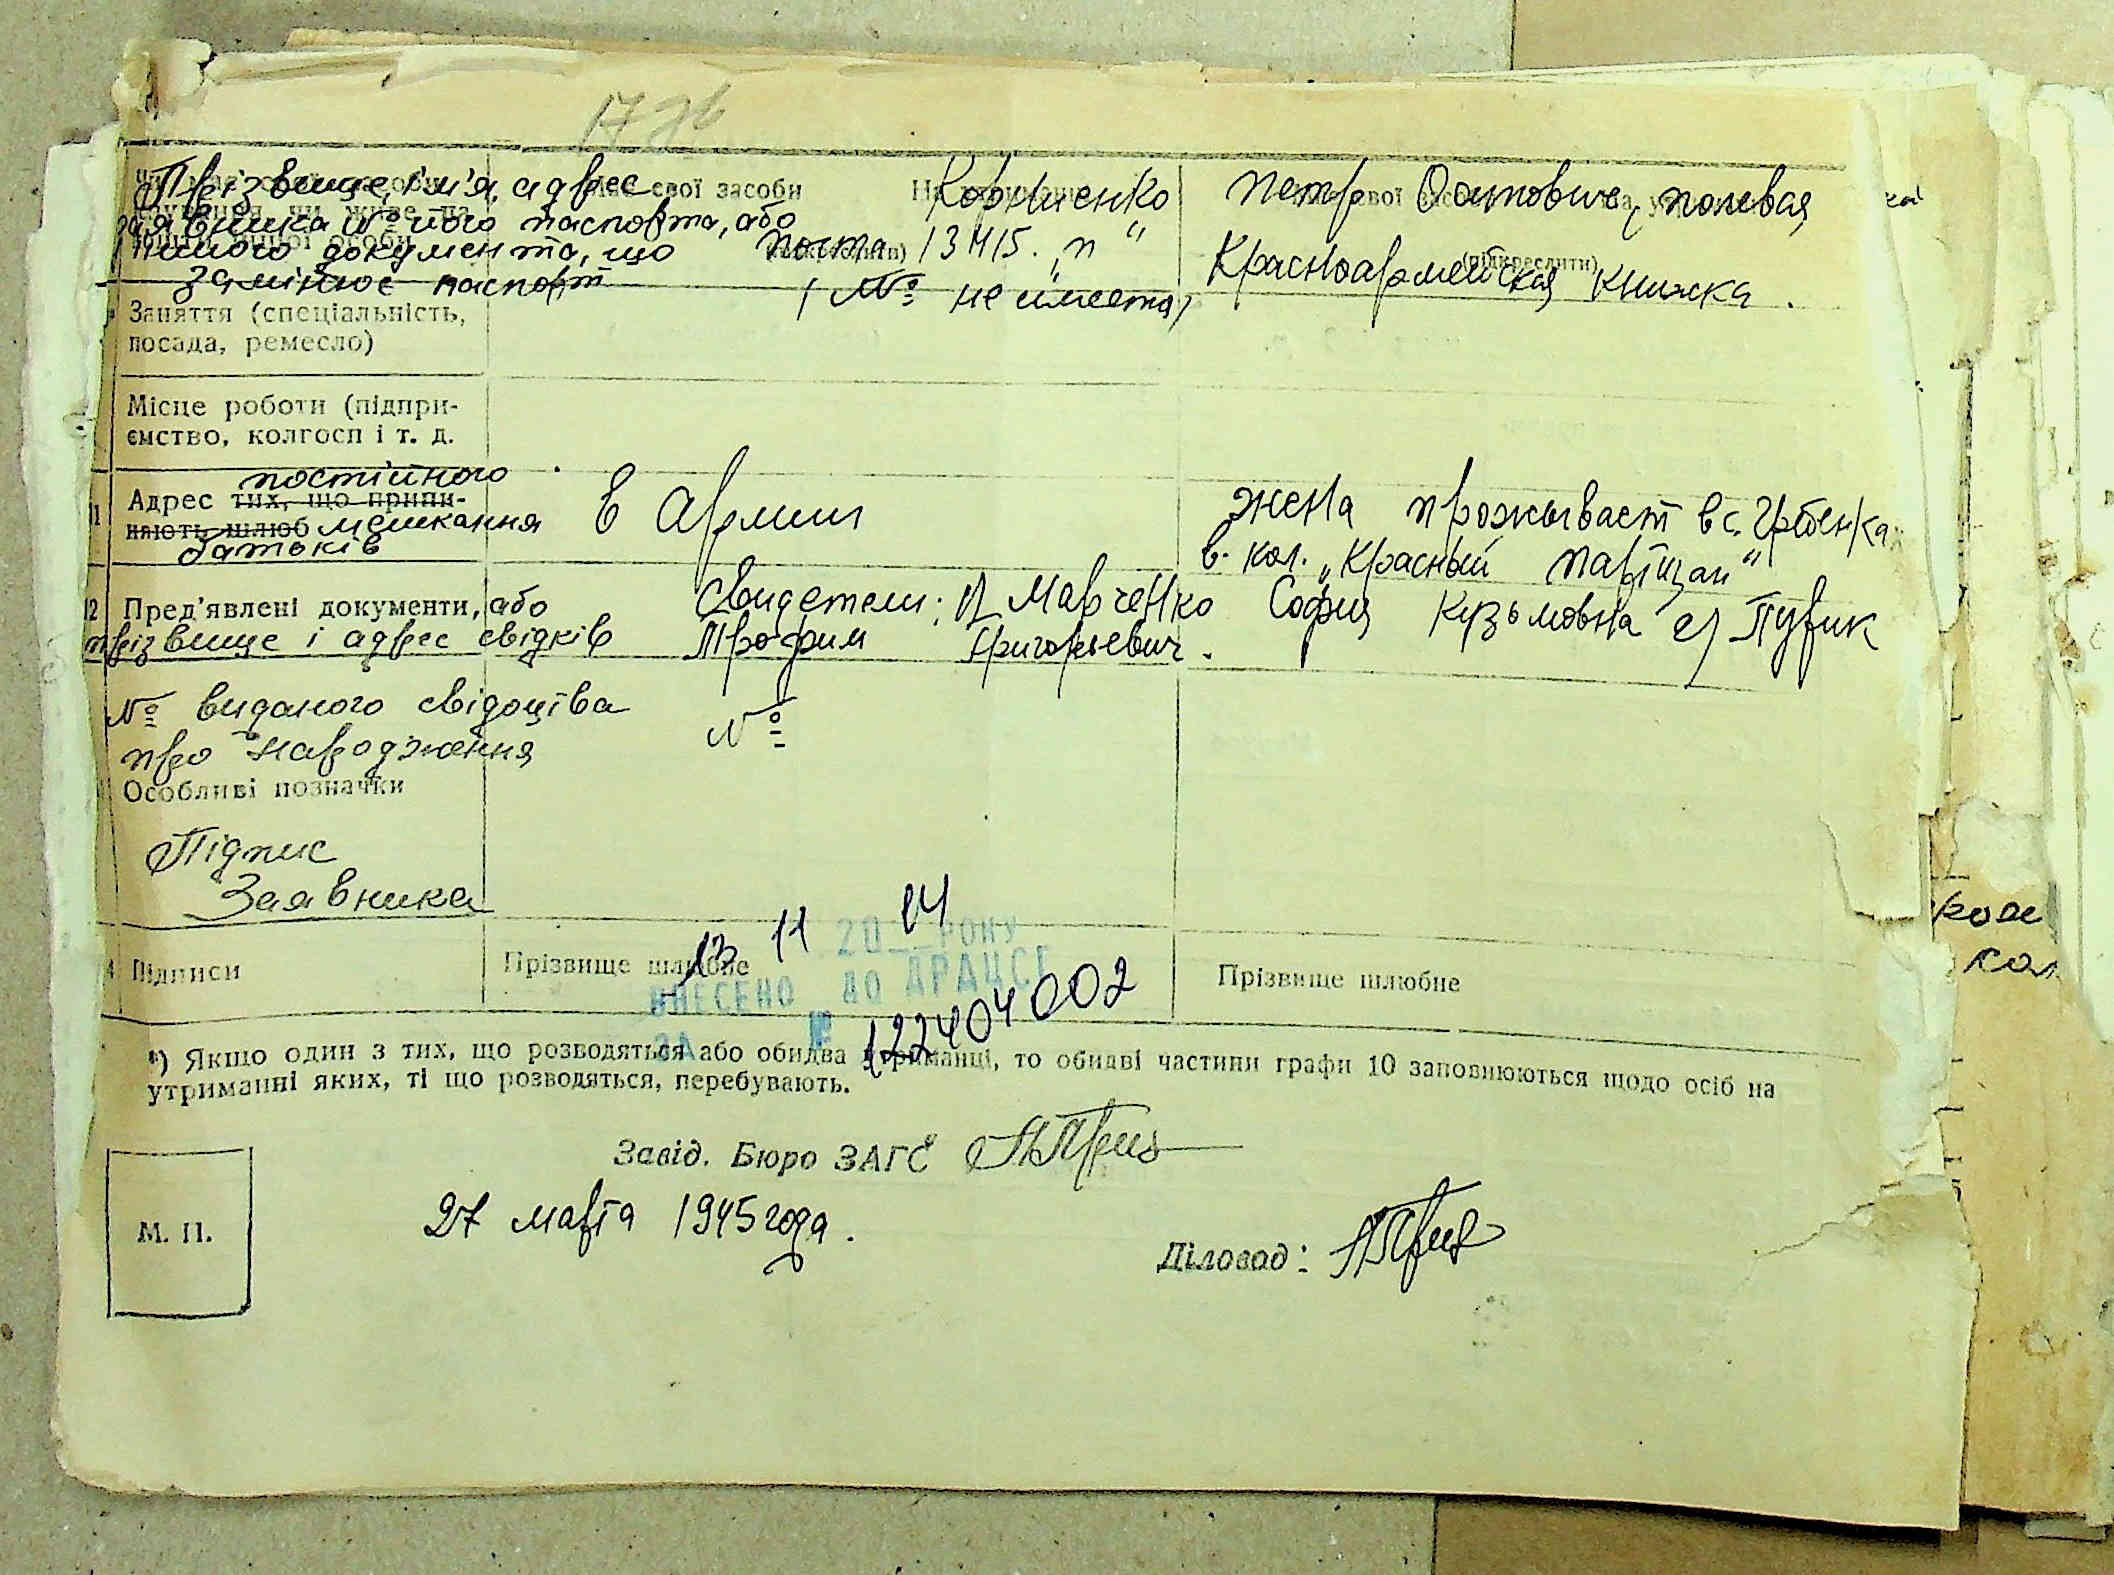 Прізвище, ім'я, адрес
свої засоби
Корниенко Петр Остапович, полевая
заявника № його паспорта, або
іншого документа, що
почта 13415 „п“
Красноармейская книжка.
(підкреслити)
замінює паспорт
(№ не имеета)
Заняття (спеціальність,
посада, ремесло)
Місце роботи (підпри-
ємство, колгосп і т. д.
постійного
Адрес тих, що прийи-
мають шлюб мешкання
батьків
В Армии
жена проживает в с. Гребенках
в. кол. „Красный партизан“
12 Пред'явлені документи, або
прізвище і адрес свідків
Свидетели: 1) Марченко София Кузьмовна 2) Пувик
Трофим Григорьевич.
№ виданого свідоцтва
про народження
№
Особливі позначки
Підпис
Заявника
13 11 20 14 РОКУ
Підписи
Прізвище шлюбне
Прізвище шлюбне
ВНЕСЕНО ДО ДРАЦСГ
ЗА № 122404002
*) Якщо один з тих, що розводяться або обидва утриманці, то обидві частини графи 10 заповнюються щодо осіб на
утриманні яких, ті що розводяться, перебувають.
Завід. Бюро ЗАГС
27 марта 1945 года.
М. П.
Діловод: